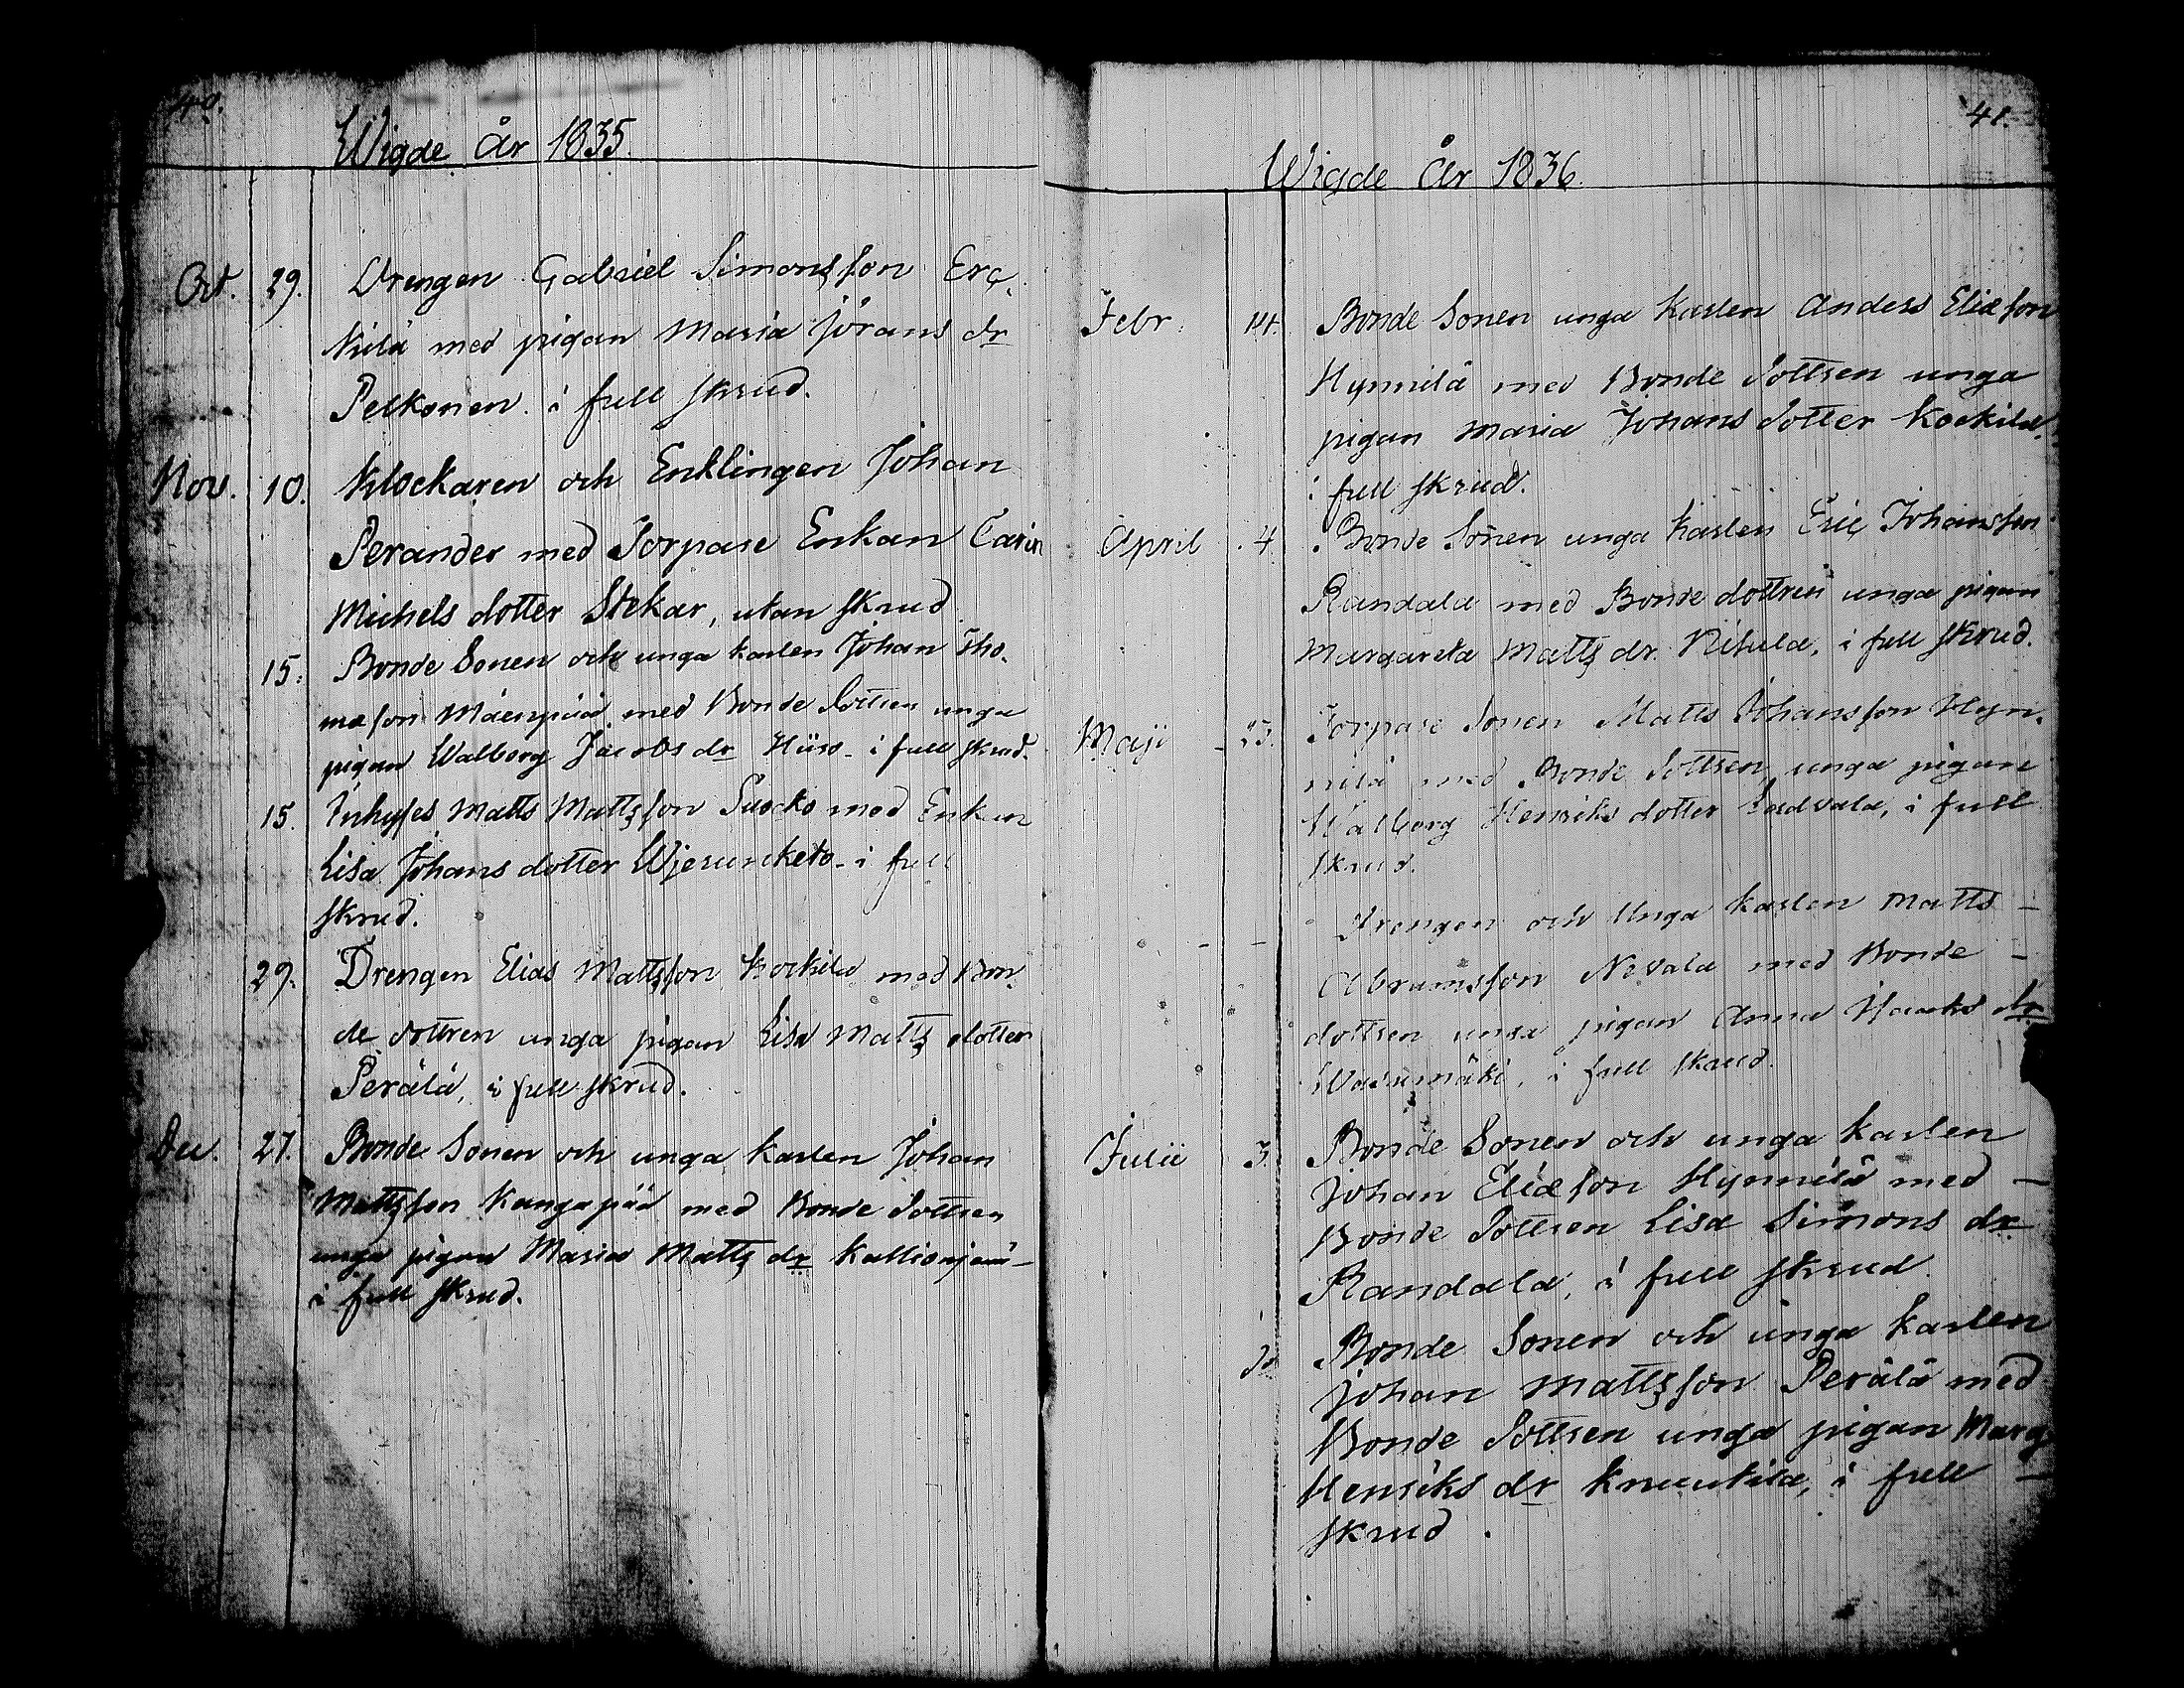 40.
Wigde År 1835.
Oct. 29. Drengen Gabriel Simonsson Erc-
kilä med pigan Maria Jörans dr
Pelkonen i full skrud.
Nov. 10. Klockaren och Enklingen Johan
Perander med Torpare Enkan Carin
Michels dotter Stekar, utan skrud
15. Bonde Sonen och unga karlen Johan Tho-
mæson Mäenpää med Bonde dottren unga
pigan Walborg Jacobs dr Hiiso- i full skrud.
15. Inhyses Matts Mattsson Suocko med Enkan
Lisa Johans dotter Wjerunketo- i full
skrud.
29. Drengen Elias Mattsson Kockila med Bon-
de dottren unga pigan Lisa Matts dotter
Perälä, i full skrud.
Dec. 27. Bonde Sonen och unga karlen Johan
Mattsson Kangapää med Bonde dottren
unga pigan Maria Matts dr
i full skrud.
41.
Wigde År 1836.
Febr. 14. Bonde Sonen unga karlen Anders Eliæson
Hynnilä med Bonde dottren unga
pigan Maria Johans dotter Kockila,
i full skrud.
April 4. Bonde Sonen unga karlen Eric Johansson
Randala med Bonde dottren unga pigan
Margareta Matts dr. i full skrud.
Maji Torpare Sonen Matts Johansson Hyn-
nilä med Bonde dottren unga pigan
Walborg Henriks dotter i full
skrud.
Drengen och Unga karlen Matts
Abramsson Nivala med Bonde
dottren unga pigan Anna Isaacks dr
i full skrud.
Julii 3. Bonde Sonen och unga karlen
Johan Eliæson Hynnilä med
Bonde dottren Lisa Simons dr
Randala, i full skrud.
Bonde Sonen och unga karlen
Johan Mattsson Perälä med
Bonde dottren unga pigan Marg
Henriks dr Knuutila, i full
skrud.